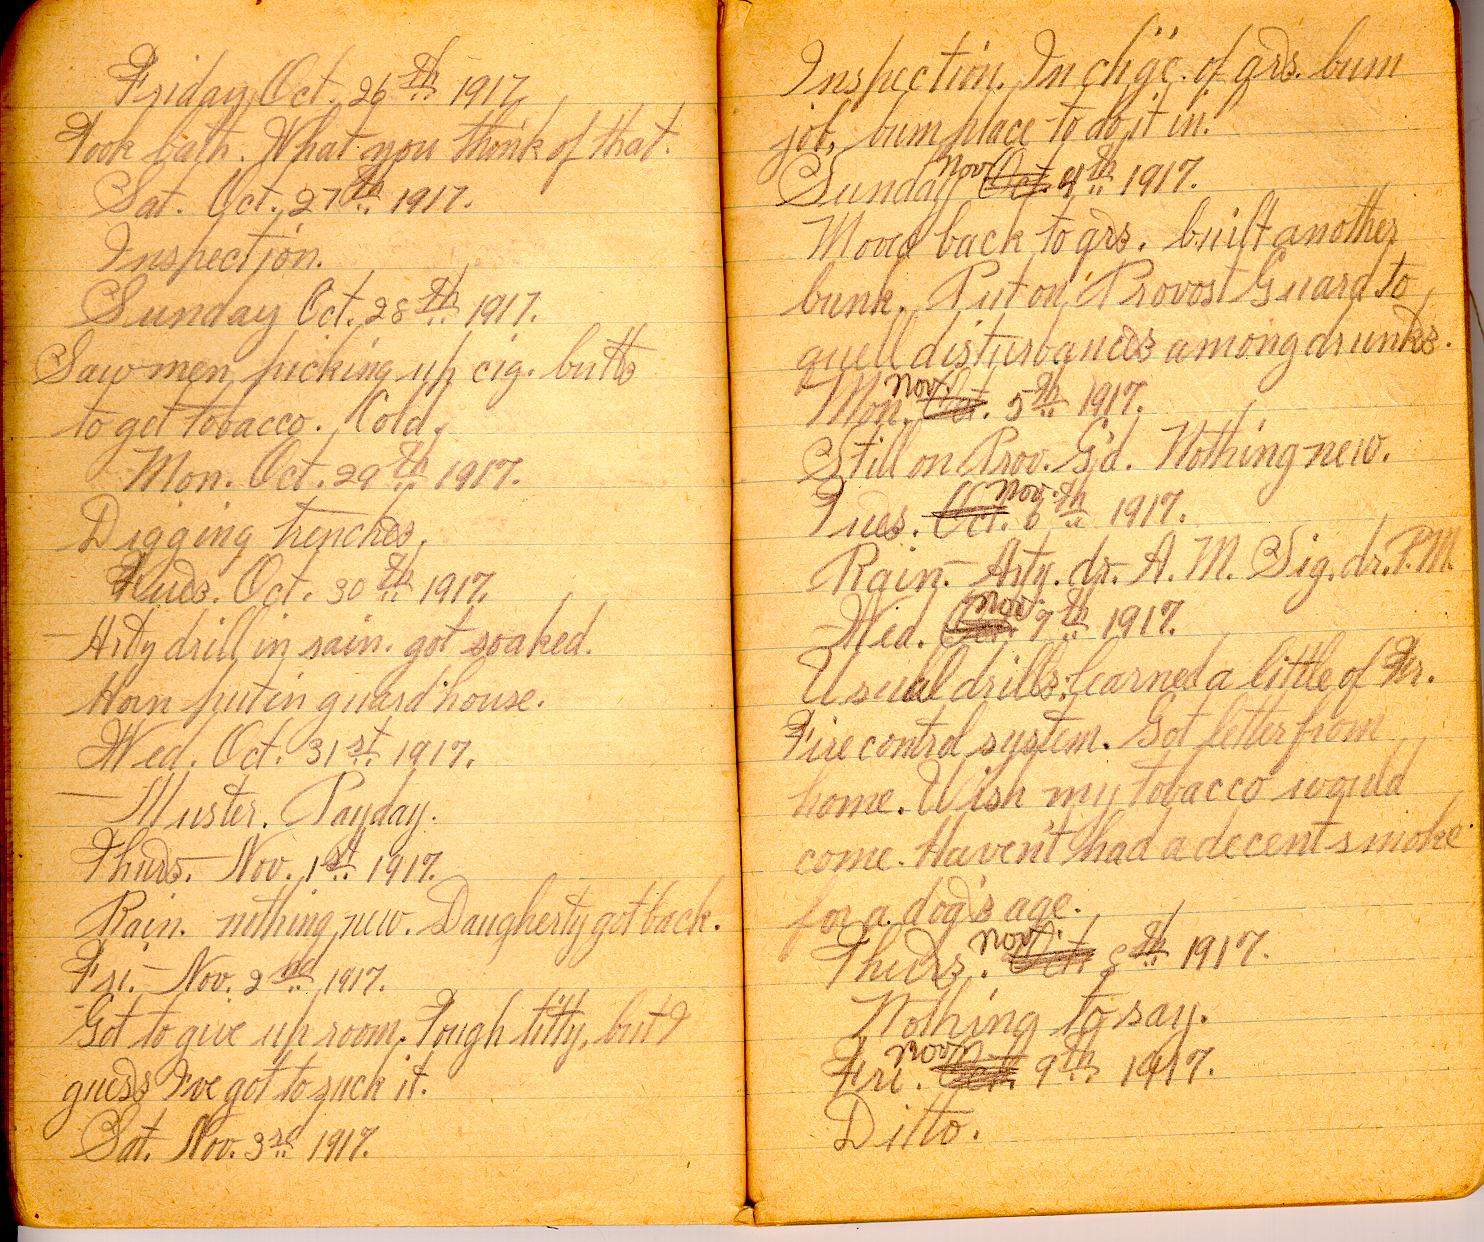 Friday, Oct. 26th 1917
Took bath. What you think of that.
Sat. Oct. 27th 1917.
Inspection.
Sunday Oct. 28th 1917.
Saw men picking up cig. butts
to get tobacco. Cold.
Mon. Oct. 29th 1917.
Digging trenches.
Tues. Oct. 30th 1917.
— Arty drill in rain. got soaked.
Horn put in guard house.
Wed. Oct. 31st 1917.
— Muster. Payday.
Thurs. — Nov. 1st 1917.
Rain. nothing new. Daugherty got back.
Fri. — Nov. 2nd 1917.
Got to give up room. Tough titty, but I
guess I've got to suck it.
Sat. Nov. 3rd 1917.
Inspection. In ch'g'e. of qrs. bum
job, bum place to do it in.
Sunday Nov Oct. 4th 1917.
Moved back to qrs. built another
bunk. Put on Provost Guard to
quell disturbances among drunks.
Mon. Nov Oct. 5th 1917.
Still on Prov. G'd. Nothing new.
Tues. Oct. Nov. 6th 1917.
Rain — Arty. dr. A. M. Sig. dr. P.M.
Wed. Nov. Oct. 7th 1917.
Usual drills, learned a little of Fr.
Fire control system. Got letter from
home. Wish my tobacco would
come. Haven't had a decent smoke
for a dog's age.
Thurs. Nov. Oct. 8th 1917.
Nothing to say.
Fri. Nov. Oct. 9th 1917.
Ditto.